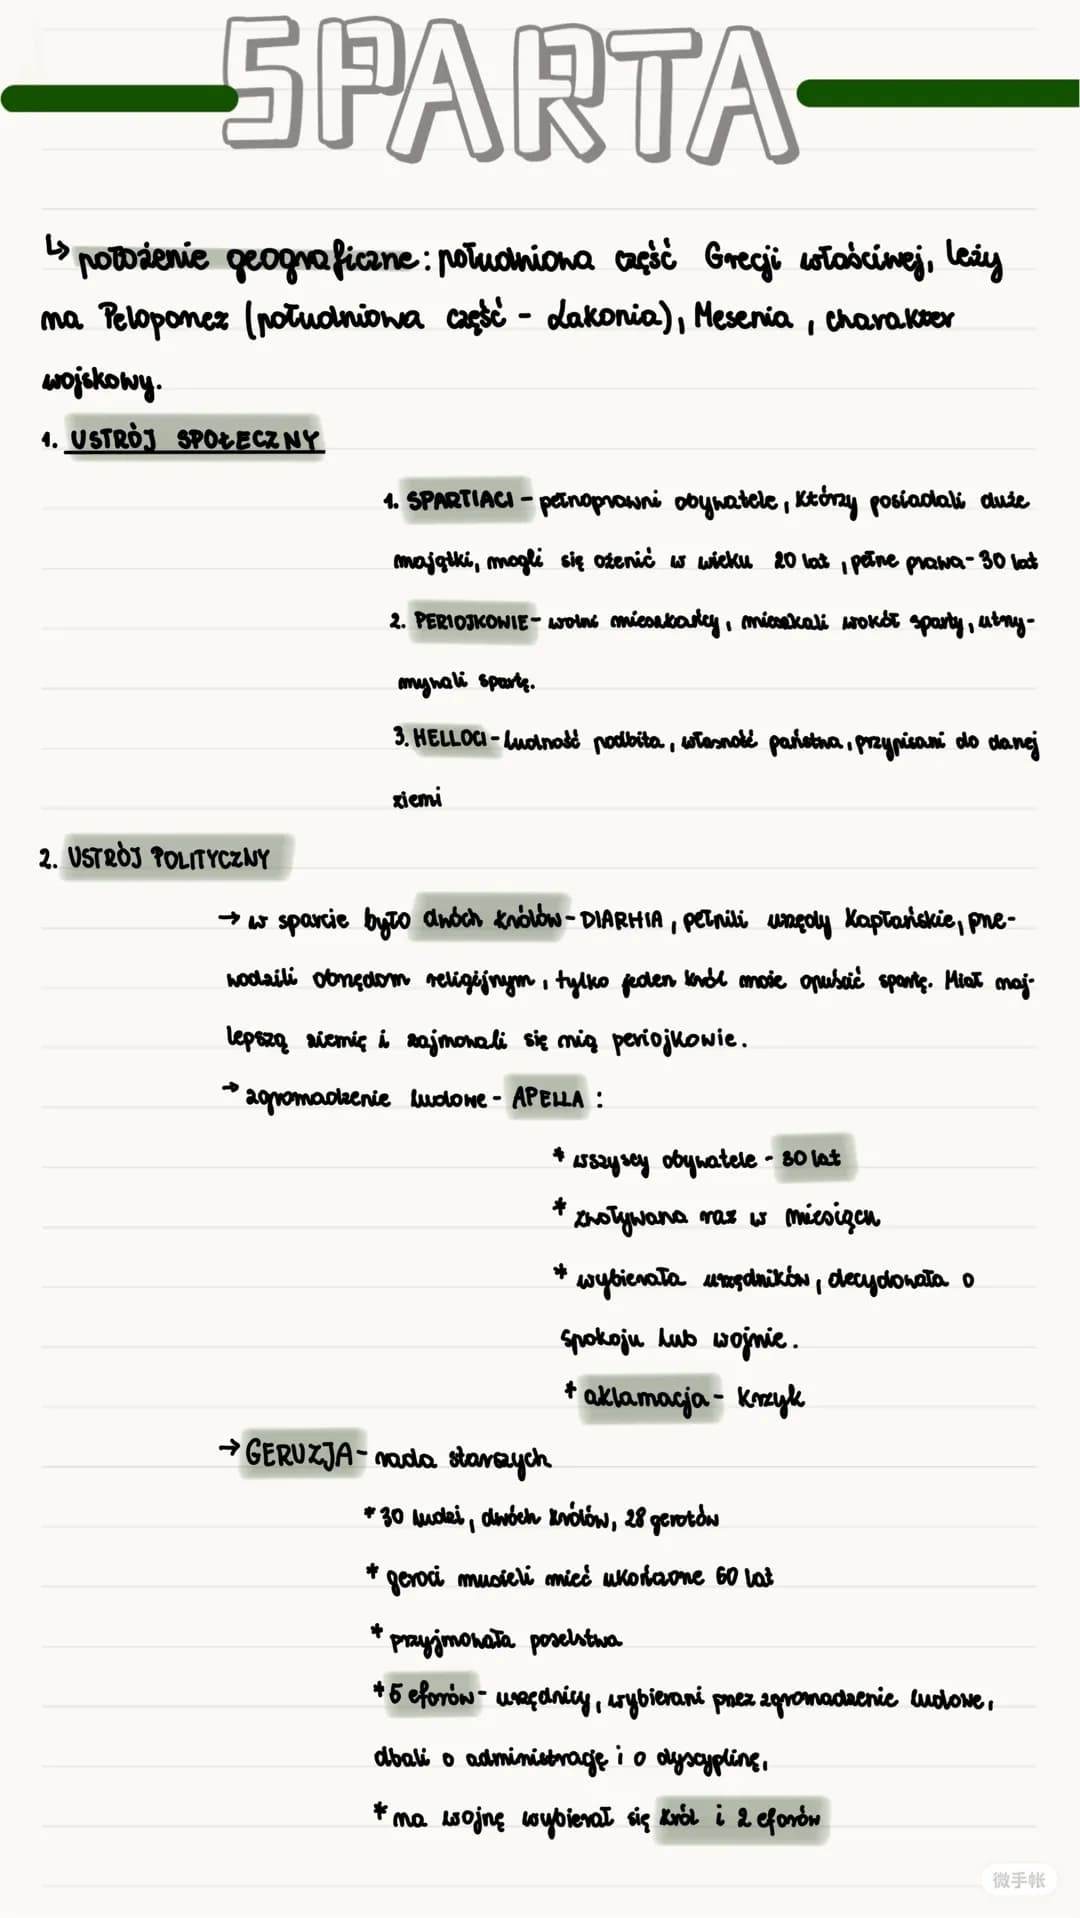 SPARTA
↳ położenie geograficzne: południowa część Grecji właściwej, leży
na Peloponez (południowa część - Lakonia), Mesenia, charakter
wojskowy.
1. USTRÓJ SPOŁECZNY
1. SPARTIACI - pełnoprawni obywatele, którzy posiadali duże
majątki, mogli się ożenić w wieku 20 lat, pełne prawa - 30 lat
2. PERIOJKOWIE - wolni mieszkańcy, mieszkali wokół sparty, utrzy-
mywali spartę.
3. HELLOCI - ludność podbita, własność państwa, przypisani do danej
ziemi
2. USTRÓJ POLITYCZNY
→ w sparcie było dwóch królów - DIARHIA, pełnili urzędy kapłańskie, prze-
wodzili obrzędom religijnym, tylko jeden król może opuścić spartę. Miał naj-
lepszą ziemię i zajmowali się nią periojkowie.
→ zgromadzenie ludowe - APELLA :
* wszyscy obywatele - 30 lat
* zwoływana raz w miesiącu
* wybierała urzędników, decydowała o
spokoju lub wojnie.
* aklamacja - krzyk
→ GERUZJA - rada starszych
* 30 ludzi, dwóch królów, 28 gerotów
* geroci musieli mieć ukończone 60 lat
* przyjmowała poselstwa
* 5 eforów - urzędnicy, wybierani przez zgromadzenie ludowe,
dbali o administrację i o dyscyplinę,
* na wojnę wybierał się król i 2 eforów
微手帐